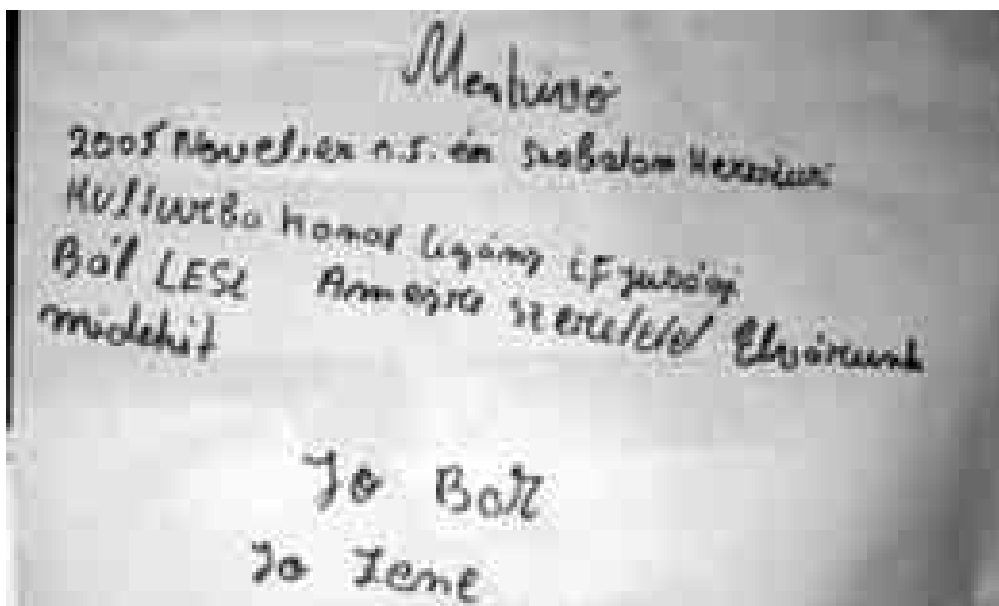 Meghívó
2005 November n.5. én Szobalom
Kulturba Homos Cigány iFjusági
Bál LESZ Amejre szeretetel Elvárunk
midekit
Jo Bor
Jo Zene